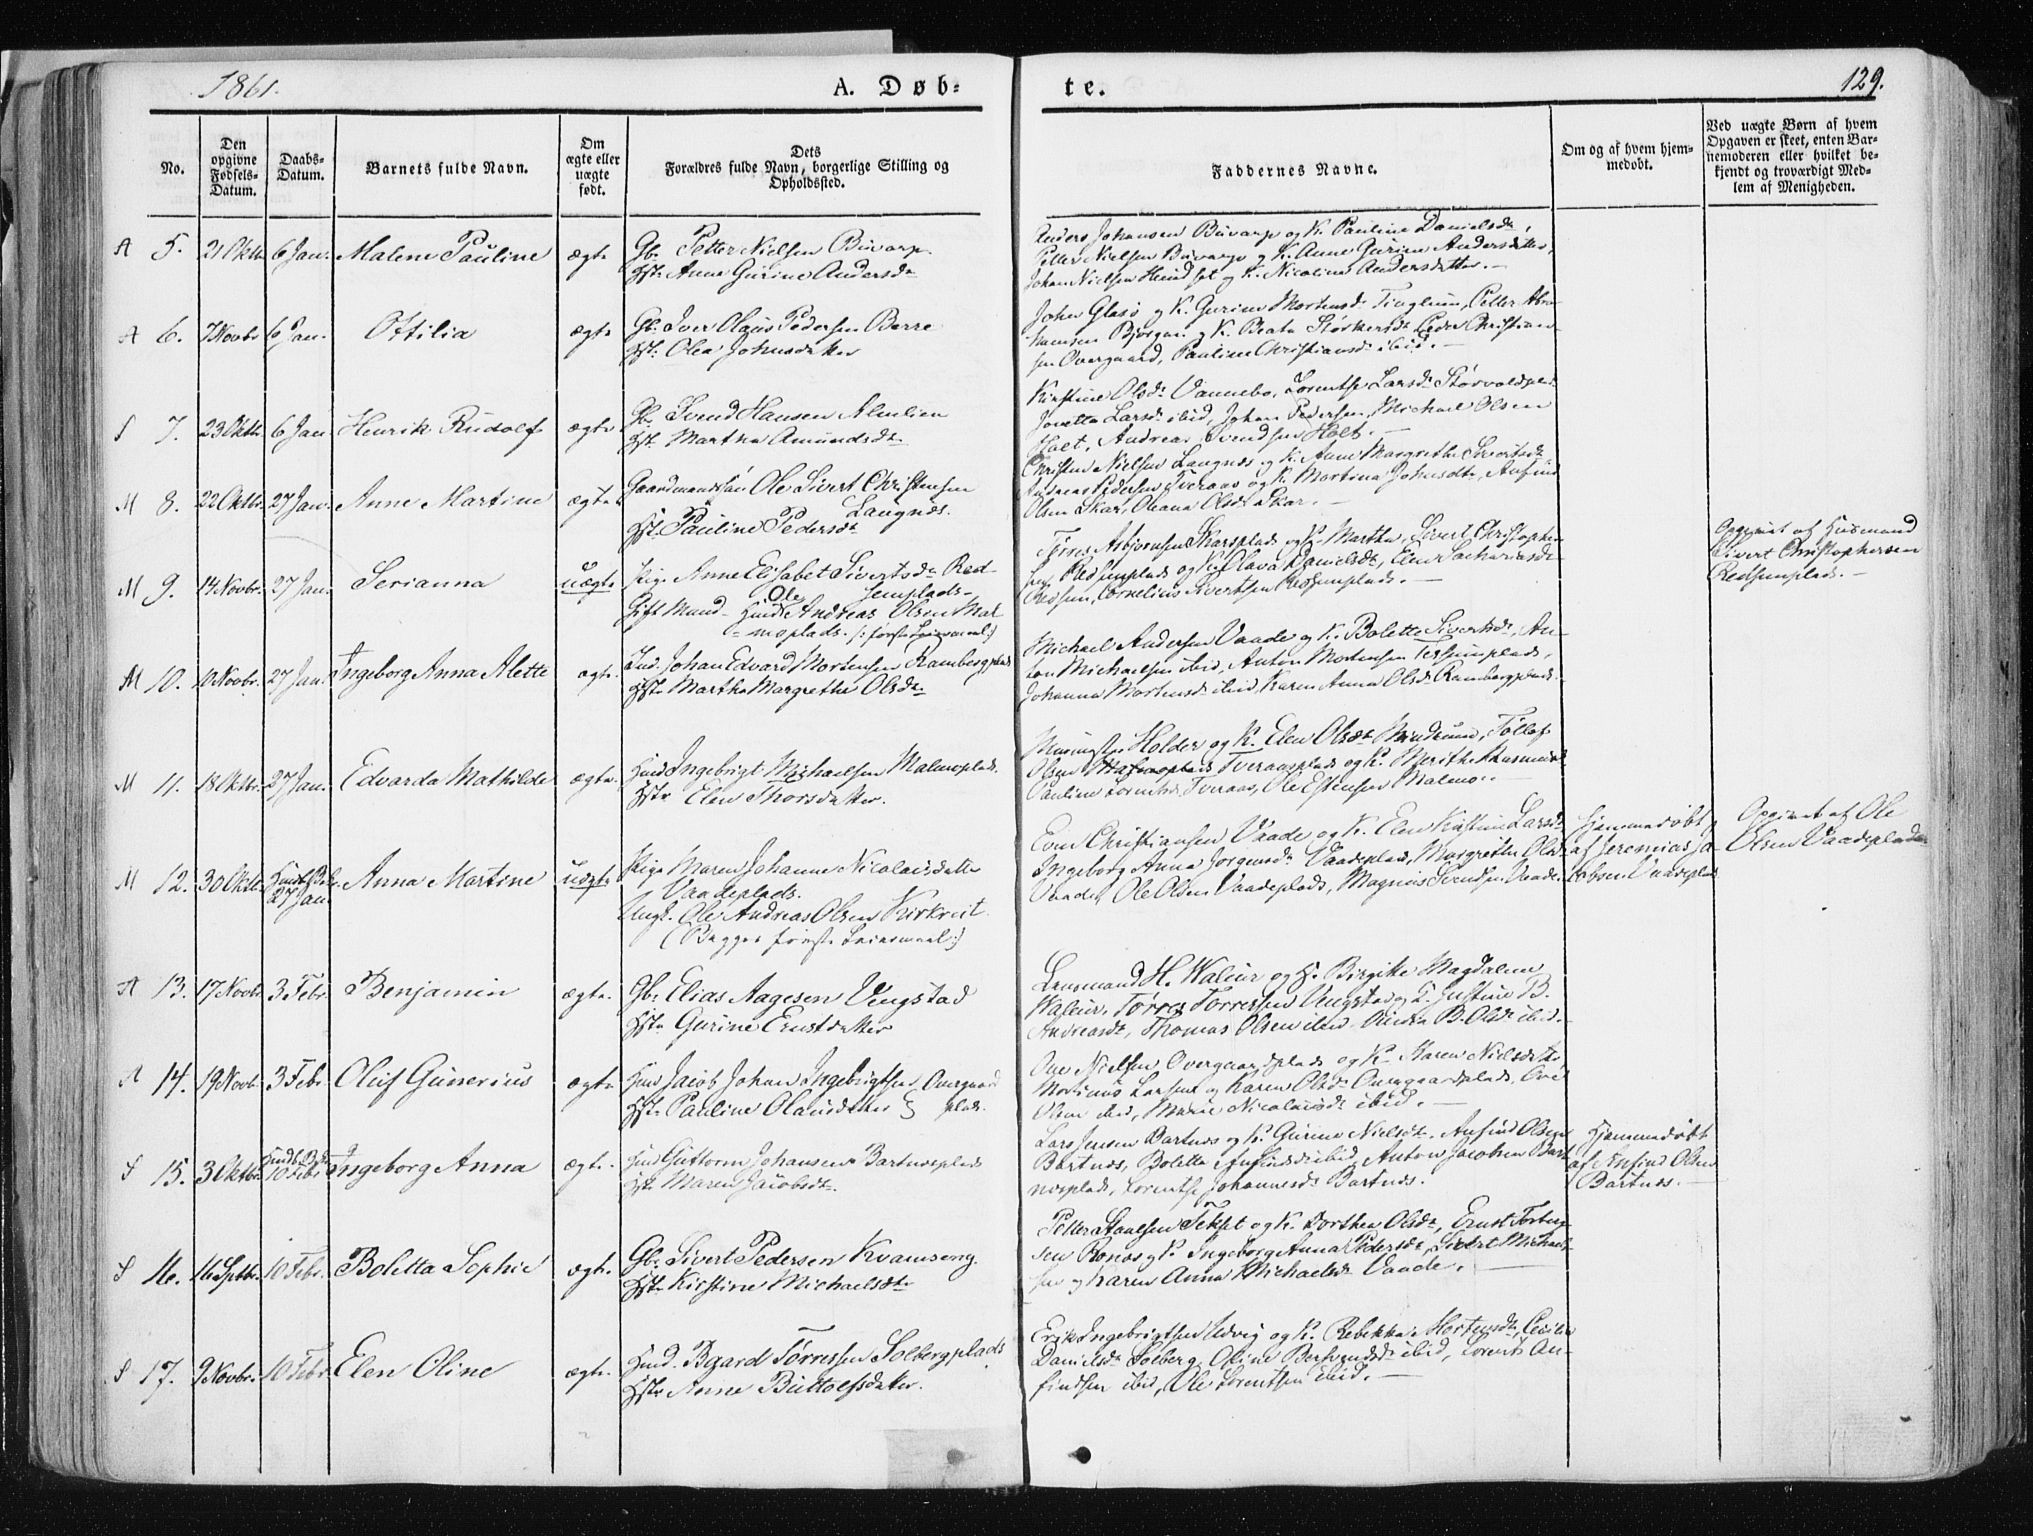 1861.
A. Døb-
te.
129.
No.
Den opgivne Fødsels-Datum.
Daabs-Datum.
Barnets fulde Navn.
Om ægte eller uægte født.
Dets
Forældres fulde Navn, borgerlige Stilling og
Opholdssted.
Faddernes Navne.
Om og af hvem hjem-
medøbt.
Ved uægte Børn af hvem
Opgaven er skeet, enten Bar-
nemoderen eller hvilket be-
kjendt og troværdigt Med-
lem af Menigheden.
A 5. 21 Oktb. 6 Jan. Malene Pauline ægte
Gb. Petter Nielsen Buvarp
Hst. Anne Gurine Andersdr
Anders Johansen Buvarp og K. Pauline Danielsdr,
Petter Nielsen Buvarp og K. Anne Gurine Andersdatter,
Johan Nielsen Heudset og K. Nicoline Andersdatter.
A 6. 7 Novbr 6 Jan. Ottilia ægte
Gb. Iver Olaus Pedersen Berre
Hst. Olea Johnsdatter
John Glasø og K. Gurine Mortensdr Tinglum, Petter Abra-
hamsen Bjørgan og K. Beata Størkersdr, Peder Christian-
sen Overgaard, Pauline Christiansdr ibid.
S 7. 23 Oktb. 6 Jan Henrik Rudolf ægte
Gb. Svend Hansen Almlien
Hst. Martha Amundsdr
Kirstine Olsdr Vannebo, Lorentse Larsdr
Jonetta Larsdr ibid, Johan Pedersen, Michael Olsen
Holt, Andreas Svendsen Holt.
M 8. 22 Oktbr. 27 Jan. Anne Martine ægte
Gaardmandssøn Ole Sivert Christensen
Langnes.
Hst. Pauline Pedersdr
Christen Nielsen Langnes og K. Anne Margrethe Sivertsdr
Andreas Pedersen Tveraas og K. Martina Johnsdtr, Anfind
Olsen Skar, Oleana Olsdr Skar.
M 9. 14 Novbr. 27 Jan. Serianna uægte
Pige Anne Elisabet Sivertsdr Red-
semplads
Gift Mand Husmd Ole Andreas Olsen Mal-
moplads. (: første Leiermaal :)
Tørres Asbjørnsen Skarsplads og K. Martha, Sivert Christopher-
sen Redsemplads og K. Olava Danielsdr, Elen Zachariasdr
Redsem, Cornelius Sivertsen Redsemplads.
Opgivet af Husmand
Sivert Christophersen
Redsemplads.
M 10. 10 Novbr. 27 Jan. Ingeborg Anna Alette ægte
Ind. Johan Edvard Mortensen Rambergplads
Hst. Martha Margrethe Olsdr
Michael Andersen Vaade og K. Bolette Sivertsdr, An-
ton Michaelsen ibid, Anton Mortensen
Johanna Mortensdr ibid, Karen Anna Olsdr Rambergplads.
M 11. 18 Oktbr. 27 Jan. Edvarda Mathilde ægte
Husmd Ingebrigt Michaelsen Malmoplads.
Hst. Elen Thorsdatter.
Holder og K. Elen Olsdr, Tollef
Olsen Tveraasplads og K. Merethe Rasmusdr
Pauline Lorentsdr Tveraas, Ole Estensen Malmo.
M 12. 30 Oktb. 27 Jan. Anna Martine uægte
Pige Maren Johanna Nicolaisdatter
Vaadeplads.
Ungk. Ole Andreas Olsen Kirkreit
(Begges første Leiermaal :)
Even Christiansen Vaade og K. Elen Kirstine Larsdr
Ingeborg Anna Jørgensdr Vaadeplads, Margrethe Olsdr
Vaade, Ole Olsen Vaadeplads, Magnus Svendsen Vaade.
Hjemmedøbt
af Jeremias Ja-
cobsen Vaadeplads
Opgivet af Ole
Olsen Vaadeplads
A 13. 17 Novbr 3 Febr. Benjamin ægte.
Gb. Elias Aagesen Vengstad
Hst. Gurine Ernstdatter
Lensmand H. Waleur og H. Birgitte Magdalene
Waleur, Tørres Torressen Vengstad og K. Justine B.
Andreasdr, Thomas Olsen ibid, B. Olsdr ibid.
A 14. 19 Novb. 3 Febr. Oluf Gunerius ægte
Husmd Jacob Johan Ingebrigtsen Overgaard
Hst. Pauline Olausdatter plads.
Ove Nielsen Overgaardsplads og K. Karen Nielsdatter
Martinus Larsen og Karen Olsdr Overgaardsplads, Ove
Olsen ibid, Marie Nicolaisdr ibid.
S 15. 3 Oktbr. 10 Febr. Ingeborg Anna ægte.
Husmd Guttorm Johansen Bartnesplads
Hst. Maren Jacobsdr.
Lars Jensen Bartnes og K. Gurine Nielsdr. Anfind Olsen
Bartnes, Boletta Anfindsdr ibid, Anton Jacobsen Bart-
nesplads, Lorentse Johannesdr Bartnes.
Hjemmedøbt
af Anfind Olsen
Bartnes.
S 16. 16 Septbr. 10 Febr. Boletta Sophie ægte.
Gb. Sivert Pedersen Kvamseng
Hst. Kirstine Michaelsdtr
Petter Staalsen Tekset og K. Dorthea Olsdr, Ernst
sen og K. Ingeborg Anna Pedersdr, Sivert Michael-
sen og Karen Anna Michaelsdr Vaade.
S 17. 9 Novbr. 10 Febr. Elen Oline ægte.
Husmd. Baard Tørressen Solbergplads
Hst. Anne Buttolfsdatter.
Erik Ingebrigtsen Udvig og K. Rebekka Mortensdr, Cecilie
Danielsdr Solberg, Oline ibid, Lorents An-
findsen ibid, Ole Lorentsen ibid.